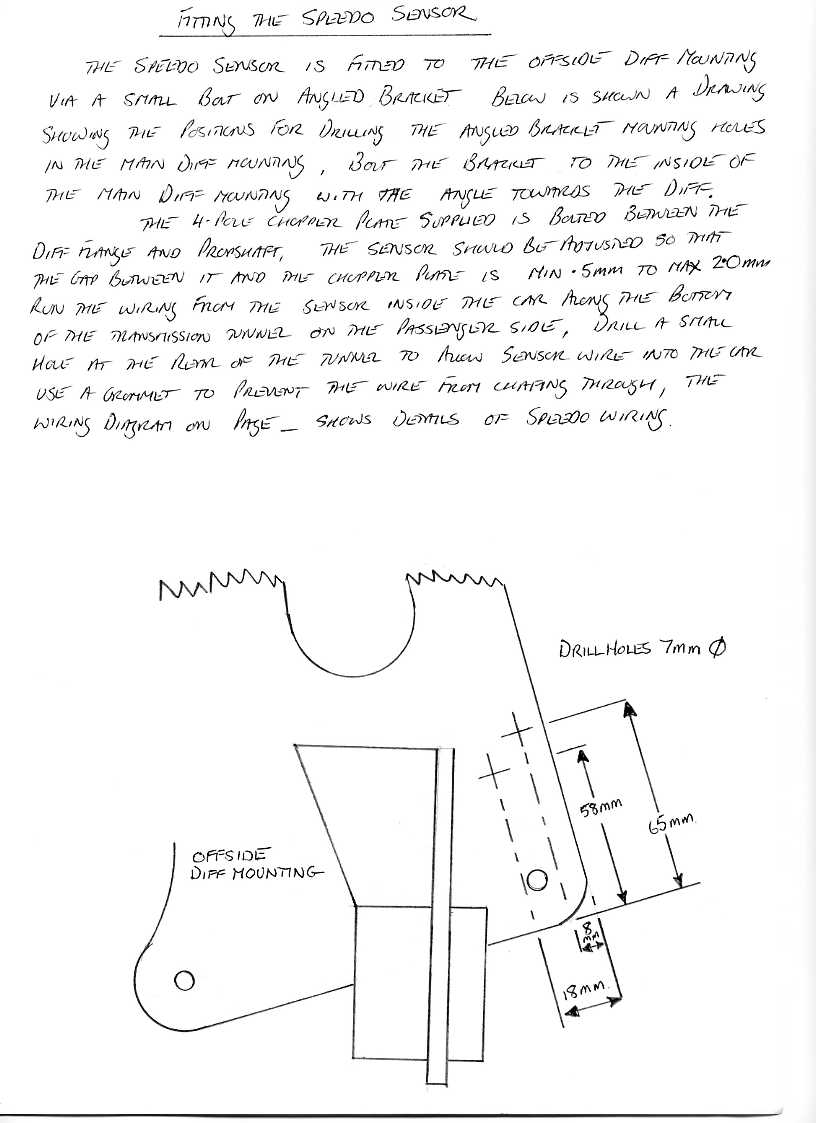 FITTING THE SPEEDO SENSOR
THE SPEEDO SENSOR IS FITTED TO THE OFFSIDE DIFF MOUNTING
VIA A SMALL BOLT ON ANGLED BRACKET. BELOW IS SHOWN A DRAWING
SHOWING THE POSITIONS FOR DRILLING THE ANGLED BRACKET MOUNTING HOLES
IN THE MAIN DIFF MOUNTING, BOLT THE BRACKET TO THE INSIDE OF
THE MAIN DIFF MOUNTING WITH THE ANGLE TOWARDS THE DIFF.
THE 4-POLE CHOPPER PLATE SUPPLIED IS BOLTED BETWEEN THE
DIFF FLANGE AND PROPSHAFT, THE SENSOR SHOULD BE ADJUSTED SO THAT
THE GAP BETWEEN IT AND THE CHOPPER PLATE IS MIN ·5mm TO MAX 2·0mm
RUN THE WIRING FROM THE SENSOR INSIDE THE CAR ALONG THE BOTTOM
OF THE TRANSMISSION TUNNEL ON THE PASSENGER SIDE, DRILL A SMALL
HOLE AT THE REAR OF THE TUNNEL TO ALLOW SENSOR WIRE INTO THE CAR
USE A GROMMET TO PREVENT THE WIRE FROM CHAFING THROUGH, THE
WIRING DIAGRAM ON PAGE _ SHOWS DETAILS OF SPEEDO WIRING.
DRILL HOLES 7mm Ø
58mm
65mm
OFFSIDE
DIFF MOUNTING
8
mm
18mm